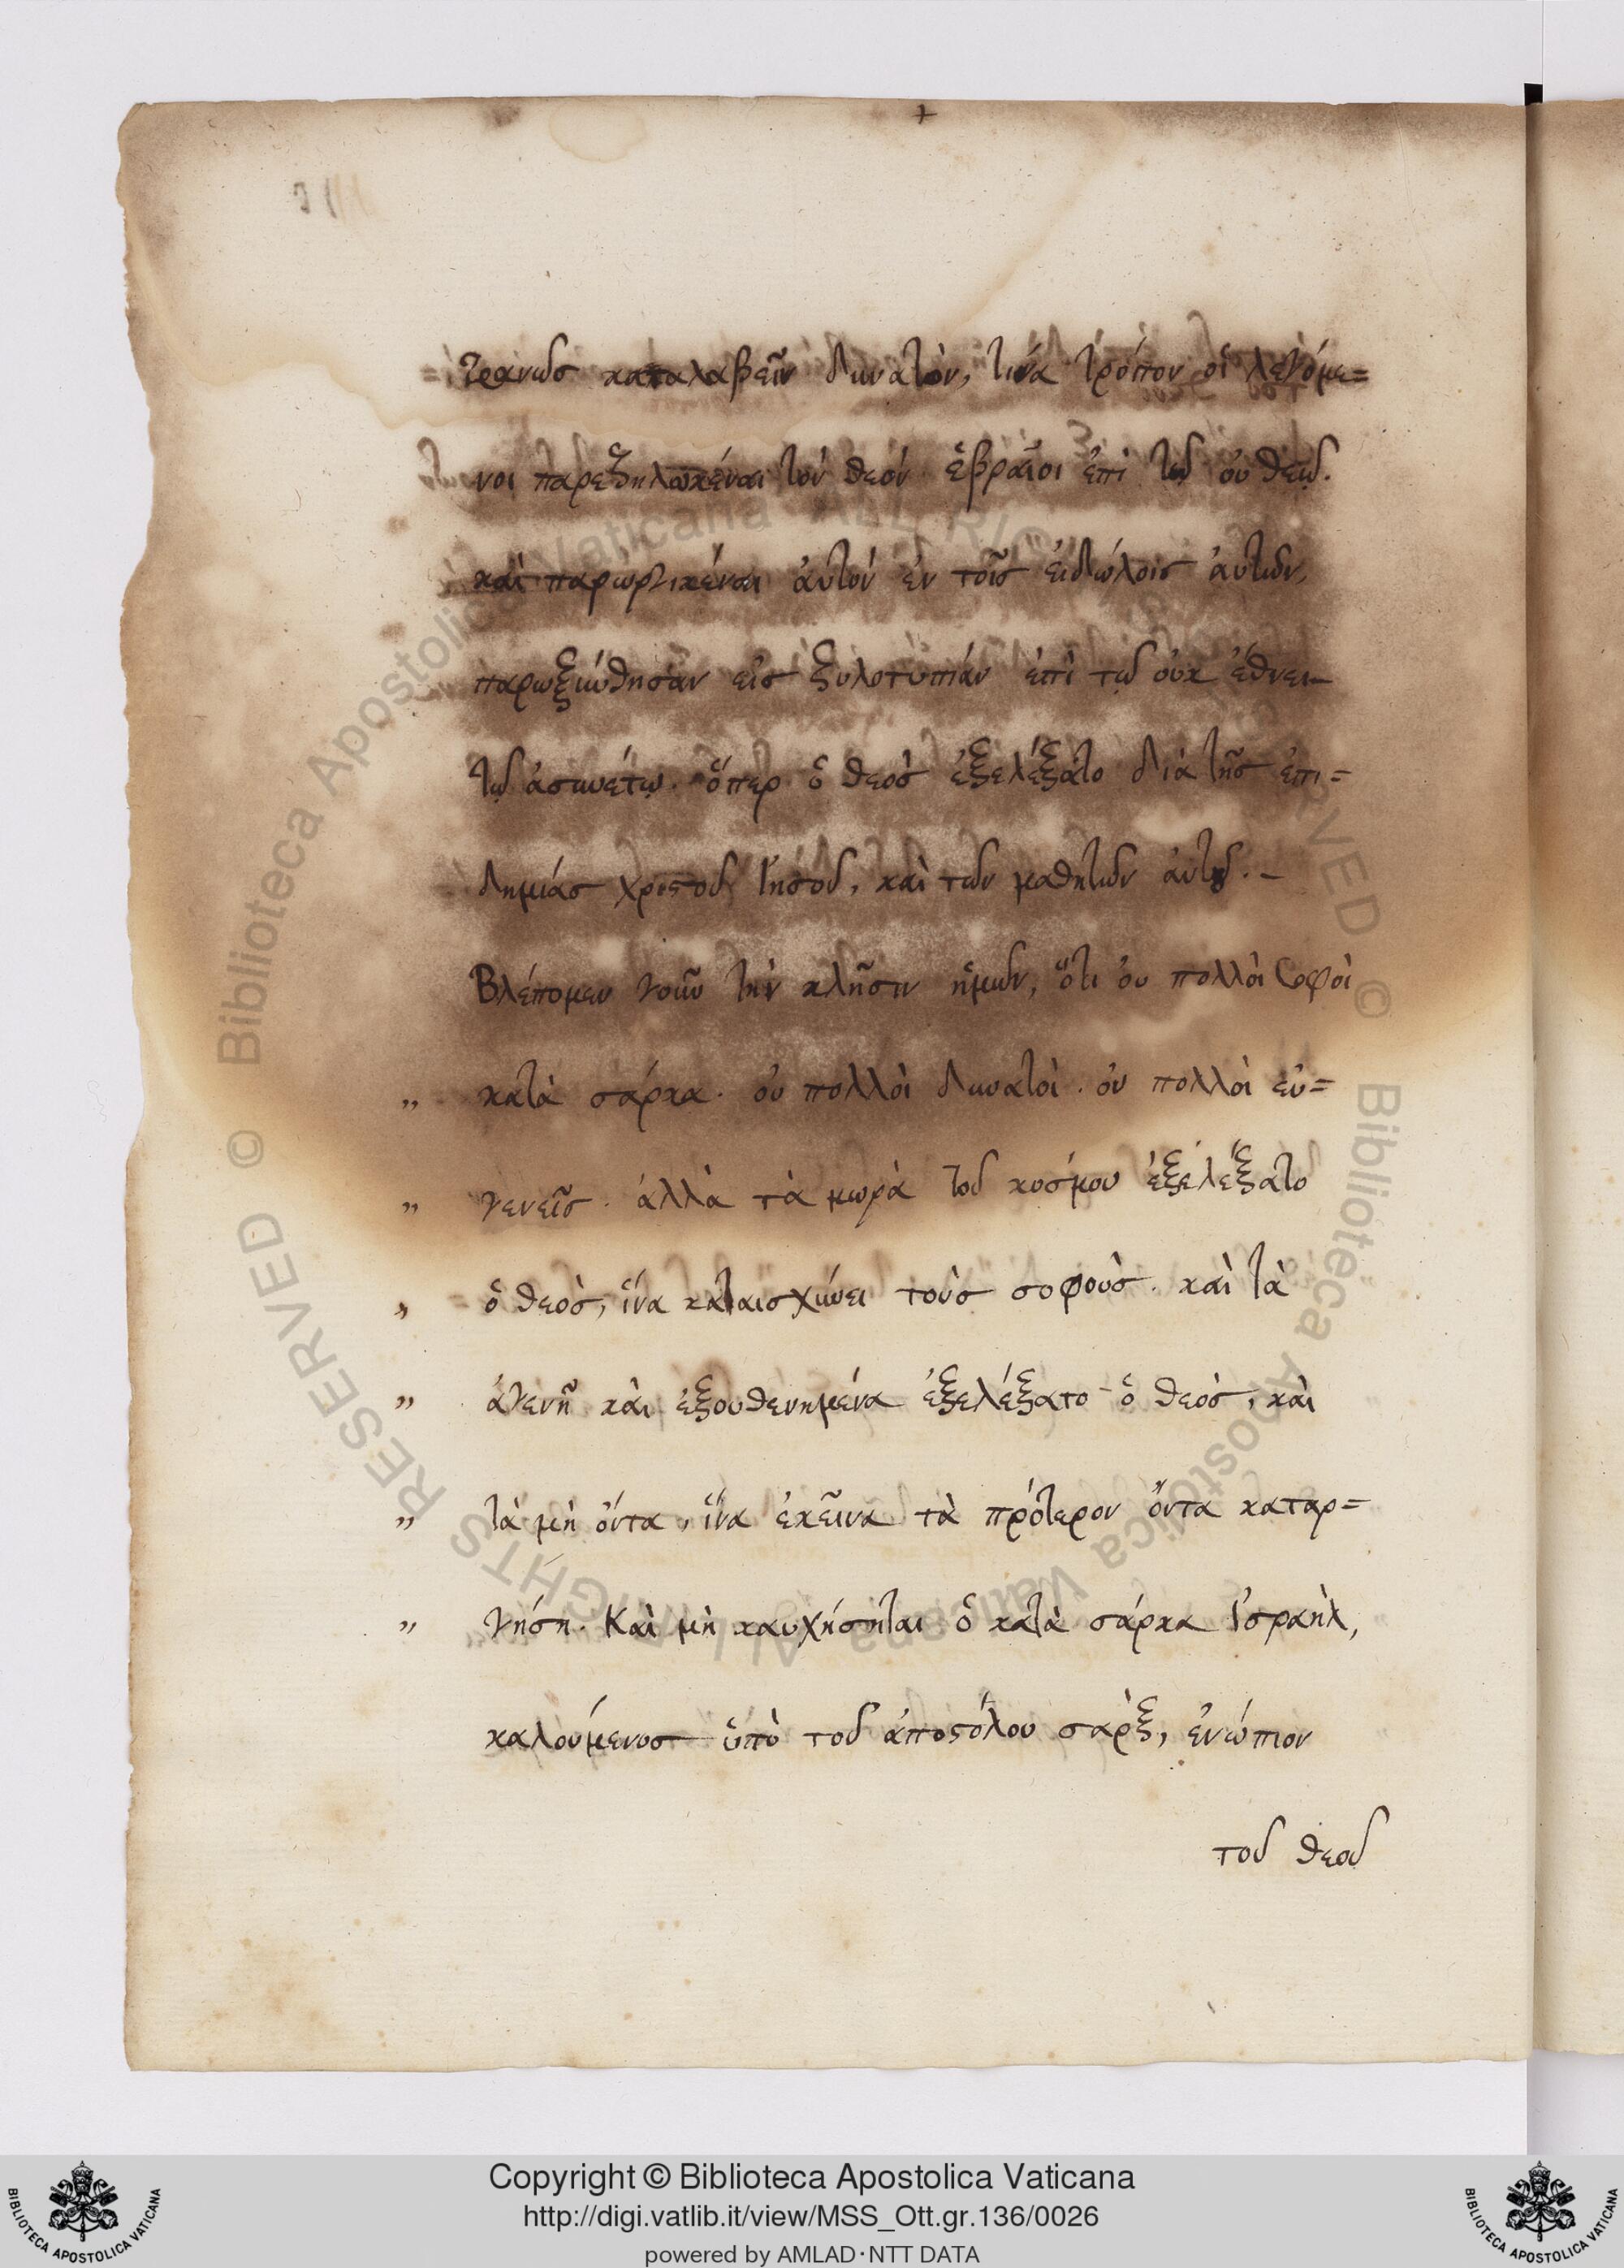 +
τρανῶσ καταλαβεῖν δυνατὸν, τίνα τρόπον οἱ λεγόμε=
νοι παρεζηλωκέναι τὸν θεόν ἑβραῖοι ἐπὶ τῶ οὐ θεῷ.
καὶ παρωργικέναι ἀυτὸν ἐν τοῖσ ἐιδώλοισ ἀυτῶν,
παρωξύνθησαν εἰσ ξυλοτυπίαν ἐπὶ τῷ οὐκ ἔθνει_
τῷ ἀσυνέτῳ. ὅπερ ὁ θεὸσ ἐξελέξατο διὰ τῆσ ἐπι=
δημίασ χριστοῦ Ἰησοῦ, καὶ τῶν μαθητῶν ἀυτοῦ._
Βλέπομεν γοῦν τὴν κλῆσιν ἡμῶν, ὅτι ὀυ πολλοὶ σοφοὶ
„ κατὰ σάρκα. ὀυ πολλοὶ δυνατοὶ. ὀυ πολλοὶ εὐ=
„ γενεῖσ. ἀλλὰ τὰ μωρὰ τοῦ κοσμου ἐξελέξατο
„ ὁ θεὸσ, ἵνα καταισχύνει τοὺσ σοφοὺσ. καὶ τὰ
„ ἀγενῆ καὶ ἐξουθενημένα ἐξελέξατο ὁ θεὸσ, καὶ
„ τὰ μὴ ὄντα, ἵνα ἐκεῖνα τὰ πρότερον ὄντα καταρ=
„ γήση. Καὶ μὴ καυχήσηται ὁ κατὰ σάρκα Ἰσραὴλ,
καλούμενοσ ὑπὸ τοῦ ἀποστόλου σὰρξ, ἐνώπιον
τοῦ θεοῦ
Copyright © Biblioteca Apostolica Vaticana
http://digi.vatlib.it/view/MSS_Ott.gr.136/0026
powered by AMLAD·NTT DATA
BIBLIOTECA APOSTOLICA VATICANA
BIBLIOTECA APOSTOLICA VATICANA